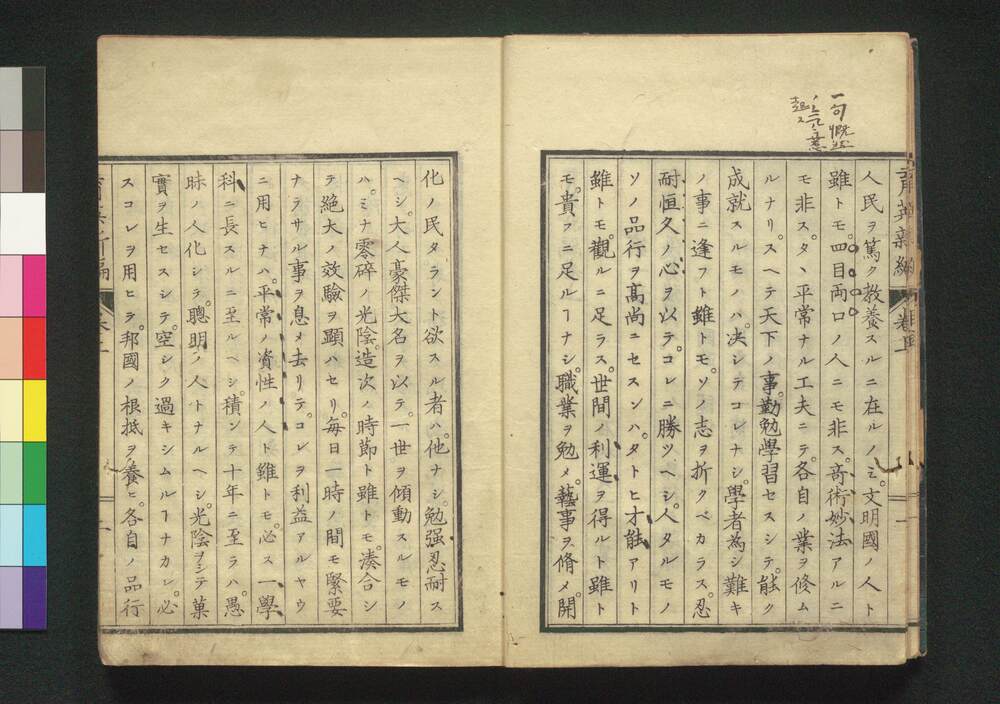 一句慨
ノ意
起ス
育英新編
人民ヲ篤ク教養スルニ在ルノミ。文明國ノ人ト
雖トモ。四目両口ノ人ニモ非ス。竒術妙法アルニ
モ非ス。タヽ平常ナル工夫ニテ。各自ノ業ヲ修ム
ルナリ。スヘテ天下ノ事。勤勉學習セスシテ。能ク
成就スルモノハ。决シテコレナシ。學者為シ難キ
ノ事ニ逢フト雖トモ。ソノ志ヲ折クベカラス。忍
耐恒久ノ心ヲ以テ。コレニ勝ツヘシ。人タルモノ
ソノ品行ヲ高尚ニセスンハ。タトヒ才能アリト
雖トモ。觀ルニ足ラス。世間ノ利運ヲ得ルト雖ト
モ。貴フニ足ルヿナシ。職業ヲ勉メ。藝事ヲ脩メ。開
化ノ民タラント欲スル者ハ。他ナシ。勉强忍耐ス
ヘシ。大人豪傑大名ヲ以テ。一世ヲ傾動スルモノ
ハ。ミナ零碎ノ光陰。造次ノ時節ト雖トモ。湊合シ
テ絶大ノ效驗ヲ顯ハセリ。毎日一時ノ間モ緊要
ナラサル事ヲ息メ去リテ。コレヲ利益アルヤウ
ニ用ヒナハ。平常ノ資性ノ人ト雖トモ。必ス一學
科ニ長スルニ至ルヘシ。積ンテ十年ニ至ラハ。愚
昧ノ人化シテ。聰明ノ人トナルヘシ。光陰ヲシテ菓
實ヲ生セスシテ。空シク過キシムルヿナカレ。必
スコレヲ用ヒテ。邦國ノ根抵ヲ養ヒ。各自ノ品行
育英新編